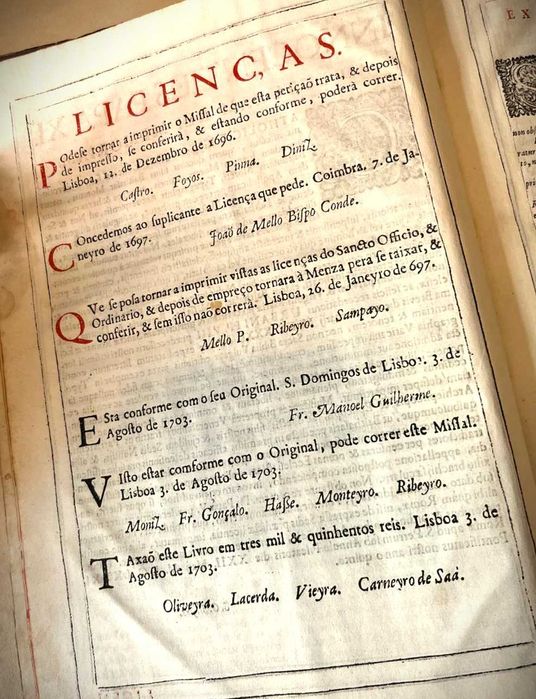 LICENC,AS.
POdese tornar a imprimir o Missal de que esta petiçaõ trata, & depois
de impresso, se conferirà, & estando conforme, poderà correr.
Lisboa, 12. de Dezembro de 1696.
Castro. Foyos. Pinna. Diniz.
COncedemos ao suplicante a Licença que pede. Coimbra, 7. de Ja-
neyro de 1697. Joaõ de Mello Bispo Conde.
QVe se posa tornar a imprimir vistas as licenças do Sancto Officio, &
Ordinario, & depois de empreço tornarà à Menza pera se taixar, &
conferir, & sem isso naõ correrà. Lisboa, 26. de Janeyro de 697.
Mello P. Ribeyro. Sampayo.
ESta conforme com o seu Original. S. Domingos de Lisboa. 3. de
Agosto de 1703. Fr. Manoel Guilherme.
VIsto estar comforme com o Original, pode correr este Missal.
Lisboa 3. de Agosto de 1703.
Moniz. Fr. Gonçalo. Hasse. Monteyro. Ribeyro.
TAxaõ este Livro em tres mil & quinhentos reis. Lisboa 3. de
Agosto de 1703.
Oliveyra. Lacerda. Vieyra. Carneyro de Saà.
EX